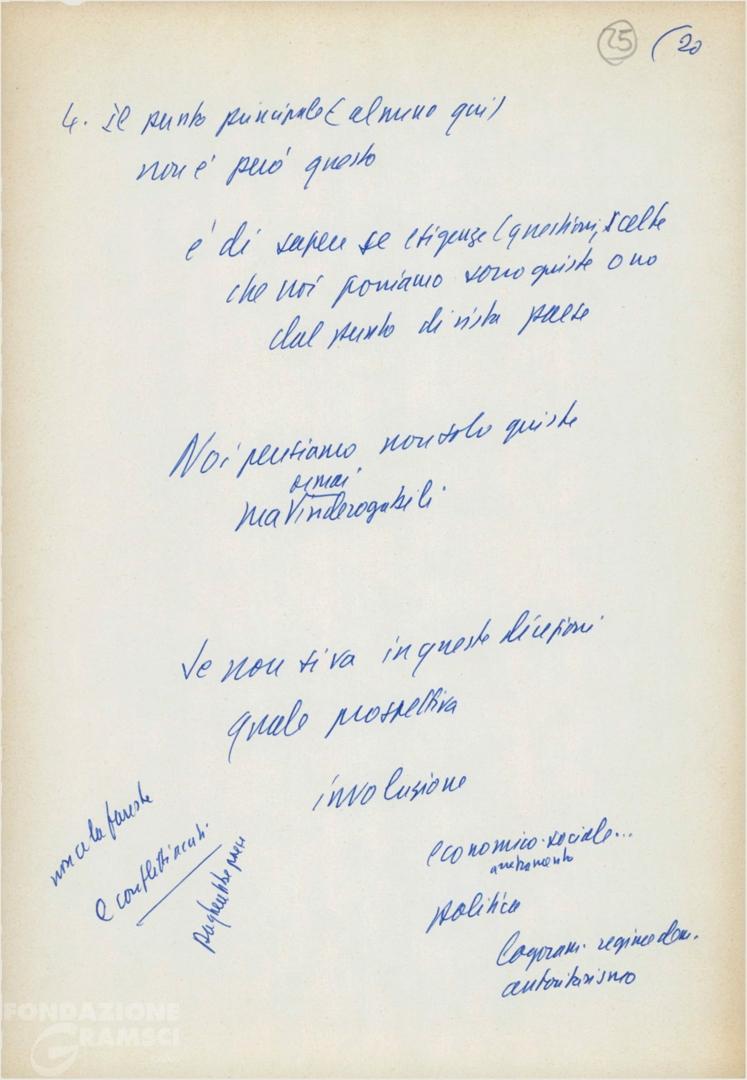 25 (20
4. Il punto principale (almeno qui)
non è però questo
è di sapere se esigenze (questioni, scelte
che noi poniamo sono giuste o no
dal punto di vista paese
Noi pensiamo non solo giuste
ormai
ma inderogabili
Se non si va in queste direzioni
quale prospettiva
involuzione
economico-sociale...
arretramento
politica
logoram. regime dem.
autoritarismo
non ce la fareste
e conflitti acuti.
pagherebbe paese
FONDAZIONE
GRAMSCI